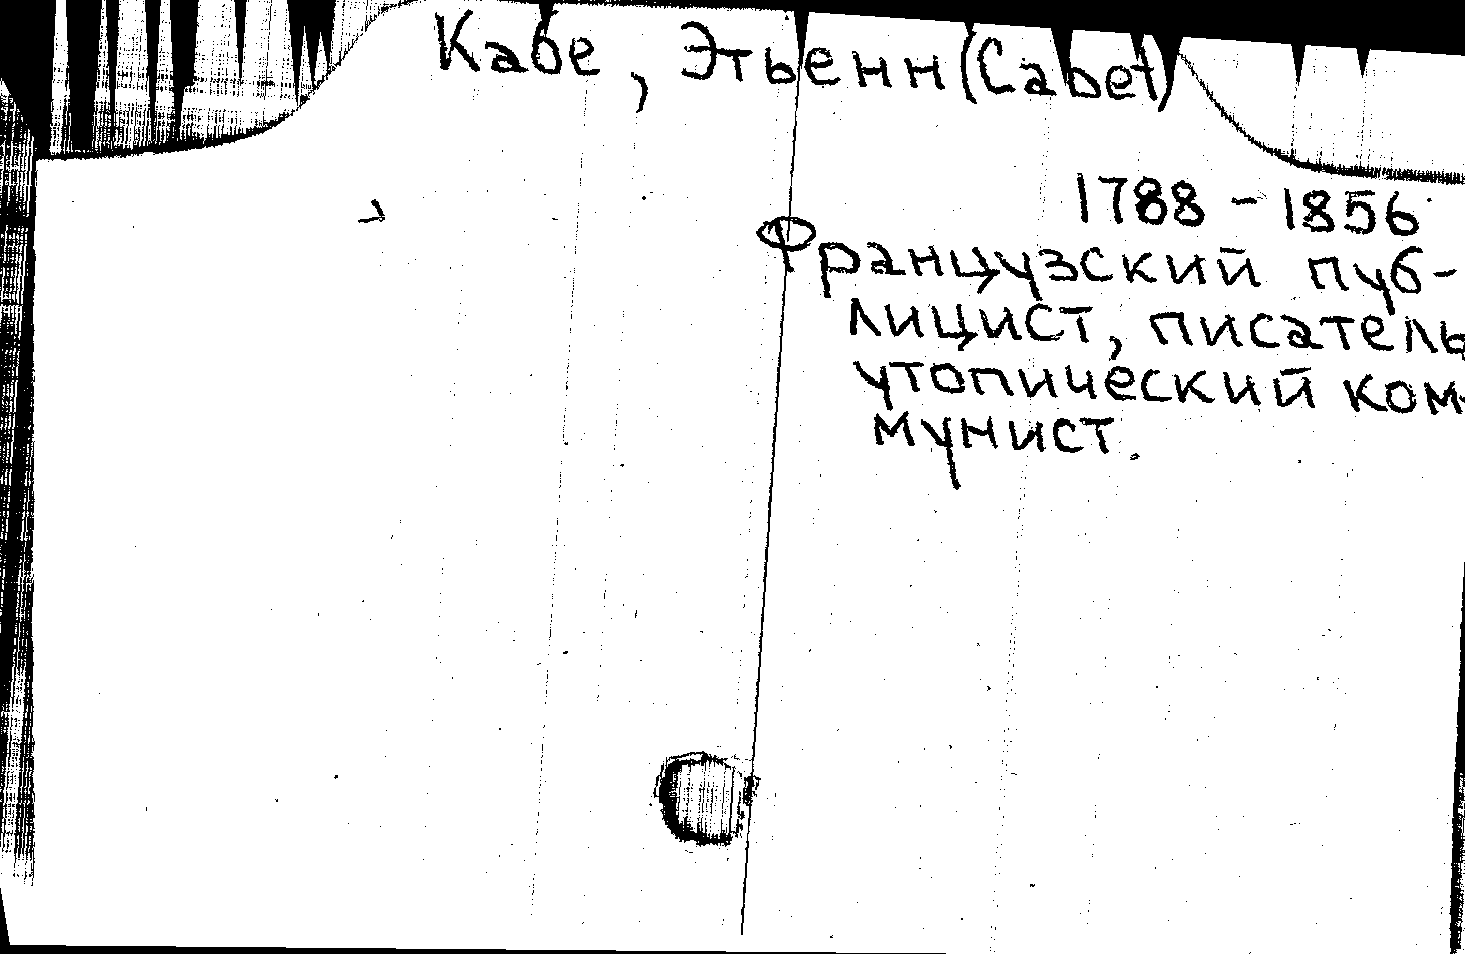 Кабе, Этьенн (Cabet)
1788 - 1856
Французский пуб-
лицист, писатель
утопический ком-
мунист.